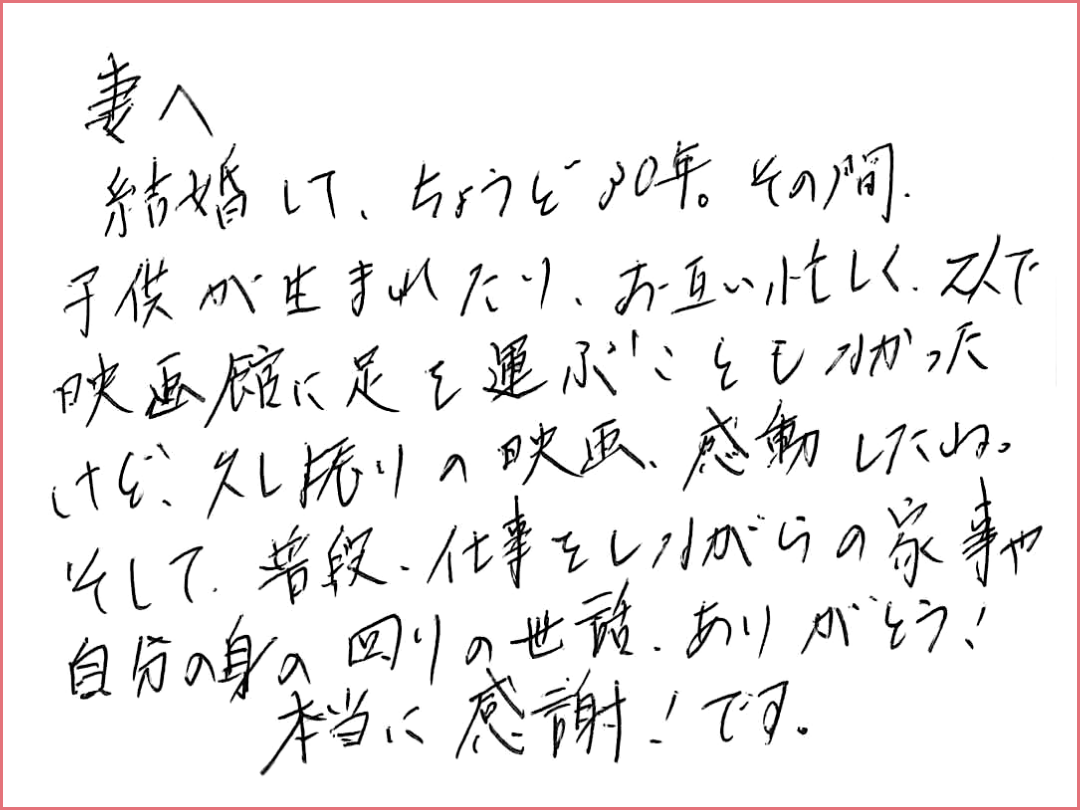 妻へ
結婚して、ちょうど30年。その間、
子供が生まれたり、お互い忙しく、2人で
映画館に足を運ぶこともなかった
けど、久し振りの映画、感動したね。
そして、普段、仕事をしながらの家事や
自分の身の回りの世話、ありがとう!
本当に感謝!です。